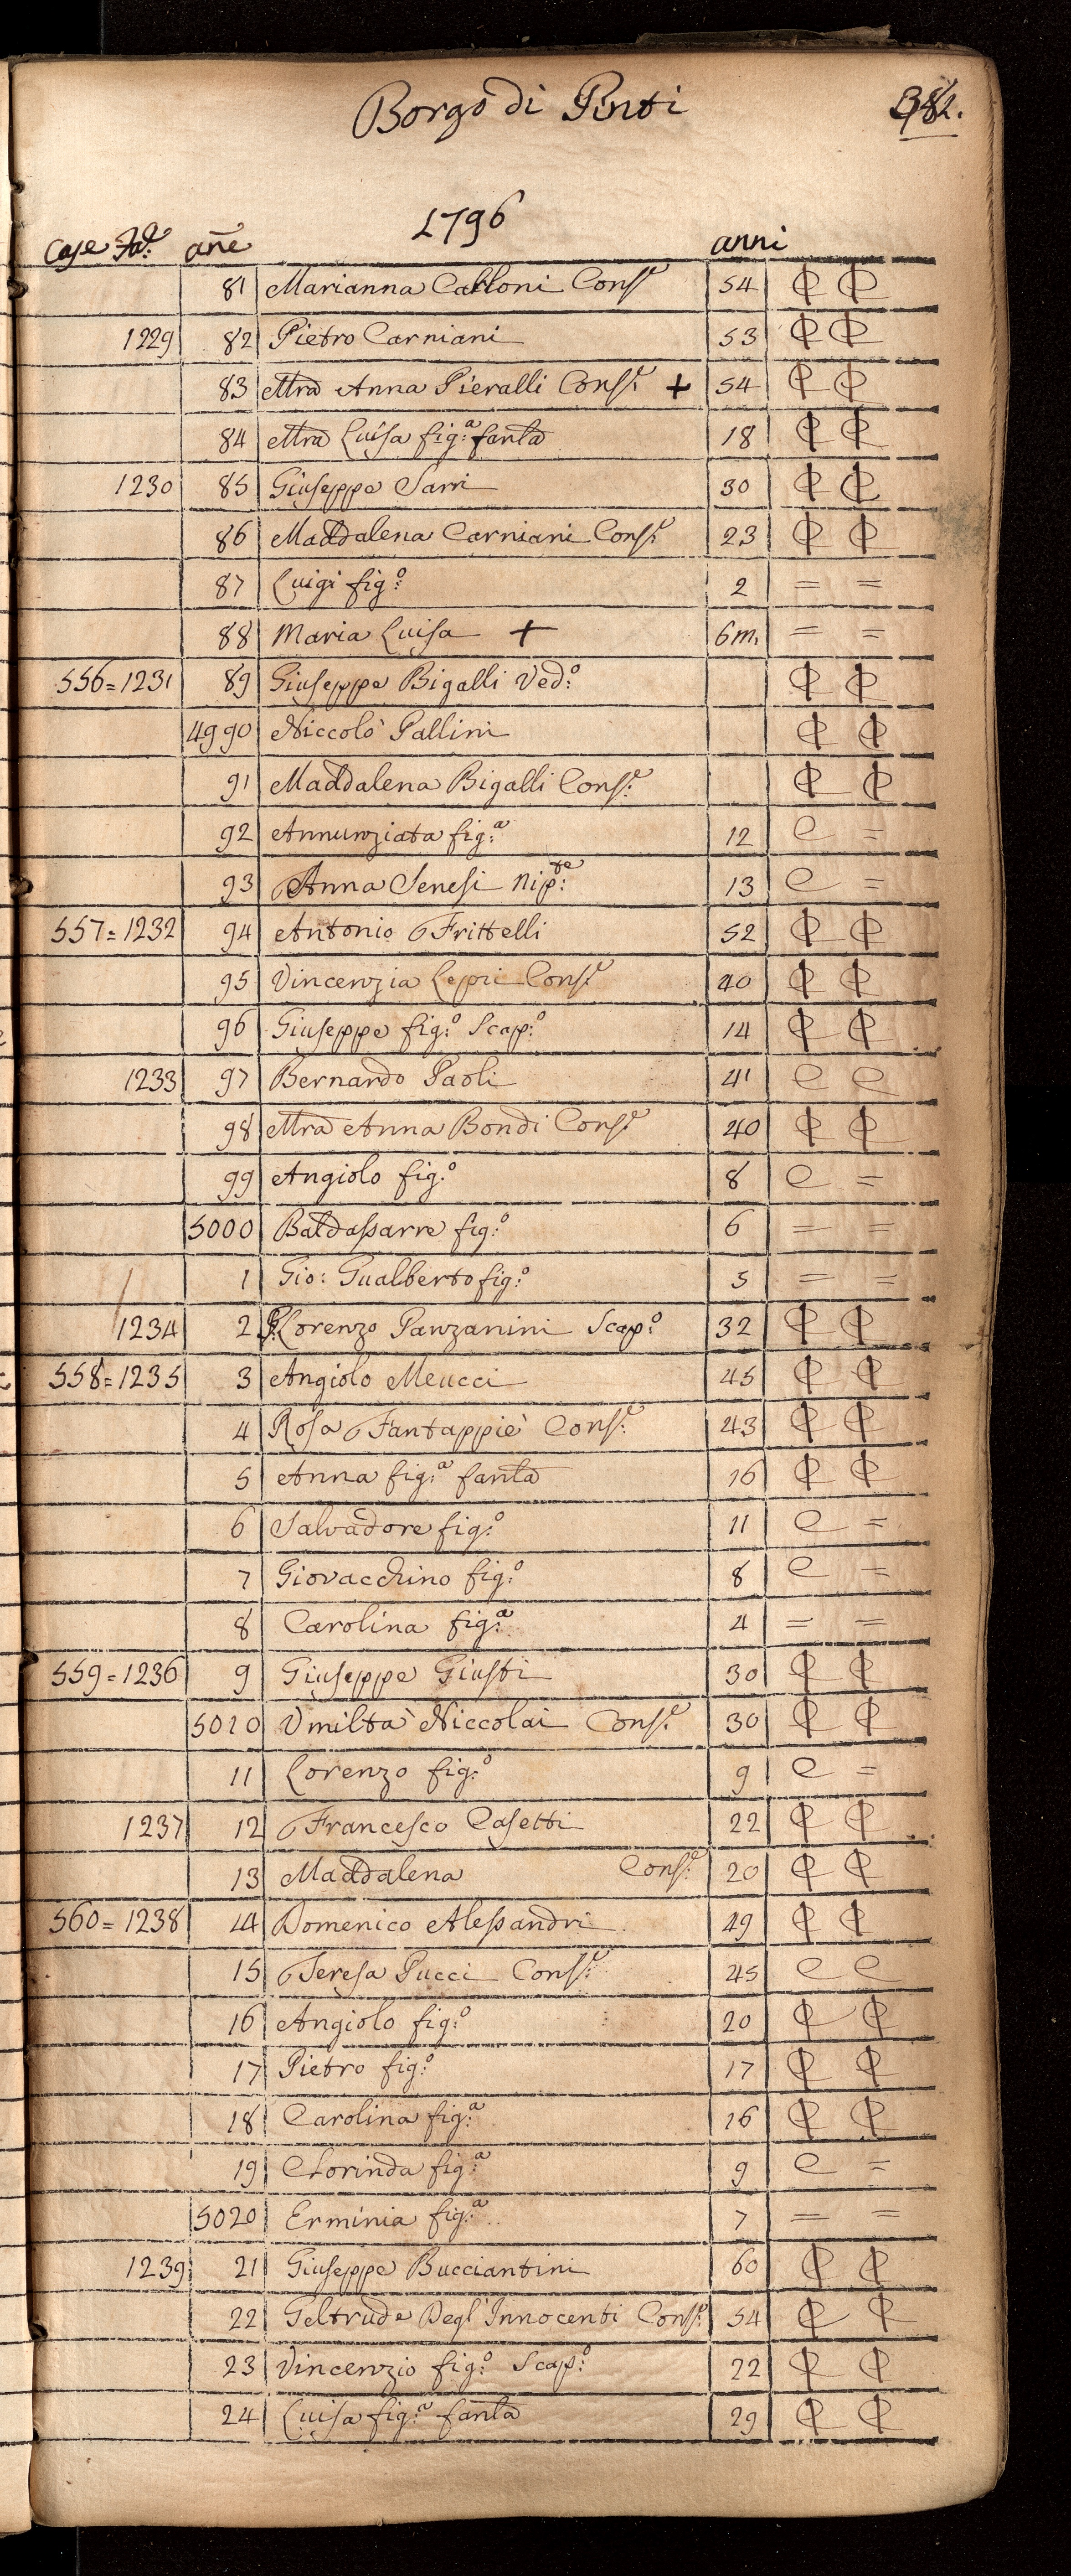 Borgo di Pinti
1796
Case Fa.e añe anni
81 Marianna Calloni Cons.e 54
1229 82 Pietro Carniani 53
83 Mra Anna Pieralli Cons.e + 54
84 Mra Luisa fig.a fanla 18
1230 85 Giuseppe Sarri 30
86 Maddalena Carniani Cons.e 23
87 Luigi fig.o 2 = =
88 Maria Luisa + 6m. = =
556=1231 89 Giuseppe Bigalli Ved.o
4990 Niccolò Pallini
91 Maddalena Bigalli Cons.e
92 Annunziata fig.a 12 C =
93 Anna Senesi nip.te 13 C =
557=1232 94 Antonio Frittelli 52
95 Vincenzia Lepri Cons.e 40
96 Giuseppe fig.o Scap.o 14
1233 97 Bernardo Paoli 41 C C
98 Mra Anna Bondi Cons.e 40
99 Angiolo fig.o 8 C =
5000 Baldassarre fig.o 6 = =
1 Gio: Gualberto fig.o 5 = =
1234 2 Lorenzo Panzanini Scap.o 32
558=1235 3 Angiolo Meucci 45
4 Rosa Fantappiè Cons.e 43
5 Anna fig.a fanla 16
6 Salvadore fig.o 11 C =
7 Giovacchino fig.o 8 C =
8 Carolina fig.a 4 = =
559=1236 9 Giuseppe Giusti 30
5010 Umiltà Niccolai Cons.e 30
11 Lorenzo fig.o 9 C =
1237 12 Francesco Casetti 22
13 Maddalena Cons.e 20
560=1238 14 Domenico Alessandri 49
15 Teresa Pucci Cons.e 45 C C
16 Angiolo fig.o 20
17 Pietro fig.o 17
18 Carolina fig.a 16
19 Clorinda fig.a 9 C =
5020 Erminia fig.a 7 = =
1239 21 Giuseppe Bucciantini 60
22 Geltrude Degl'Innocenti Cons.e 54
23 Vincenzio fig.o Scap.o 22
24 Luisa fig.a fanla 29